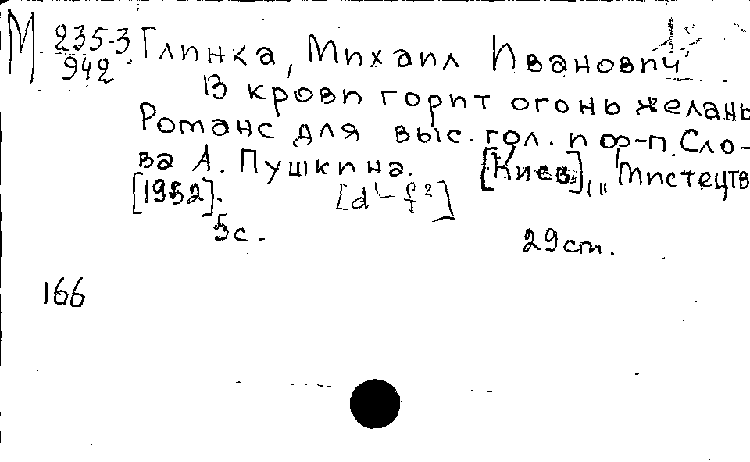 М 235-3 Глинка, Михаил Иванович
942 В крови горит огонь желань
Романс для выс. гол. и ф-п. Сло-
ва А. Пушкина. [Киев], "Мистецтв
[1952]. [d¹-f²]
5с. 29 cm.
166